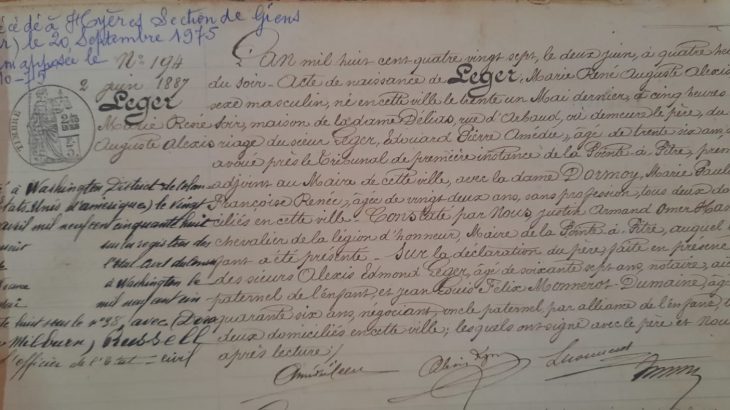 écédé à Hyères Section de Giens
r) le 20 Septembre 1975
apposée le
N° 194
2 juin 1887
Leger
Marie René
Auguste Alexis
TIMBRE
à Washington District de Colom
Etats Unis d'Amérique) le vingt
avril mil neuf cent cinquante huit
sur les registres de
l'Etat Civil de
à Washington le
mil neuf cent cin
te huit sous le n° 38, avec (Doro
Milburn) Russell
l'officier de l'Etat-civil
L'An mil huit cent quatre vingt sept, le deux juin, à quatre heu
du soir - Acte de naissance de Leger, Marie René Auguste Alexis
sexe masculin, né en cette ville le trente un Mai dernier, à cinq heures
soir, maison de la dame Délias, rue d'Arbaud, où demeure le père, du
riage du sieur Leger, Edouard Pierre Amédée, âgé de trente six ans, a
avoué près le Tribunal de première instance de la Pointe à Pitre, prem
adjoint au Maire de cette ville, avec la dame Dormoy, Marie Paul
Françoise Renée, âgée de vingt deux ans, sans profession, tous deux do
ciliés en cette ville - Constaté par Nous, Justin Armand Omer
chevalier de la légion d'honneur, Maire de la Pointe à Pitre, auquel l'
fant a été présenté - Sur la déclaration du père, faite en présence
des sieurs Alexis Edmond Leger, âgé de soixante sept ans, notaire, aïe
paternel de l'enfant, et Jean Louis Felix Monnerot-Dumaine, âgé
quarante six ans, négociant, oncle paternel, par alliance de l'enfant, t
deux domiciliés en cette ville; lesquels ont signé avec le père et Nous
après lecture;